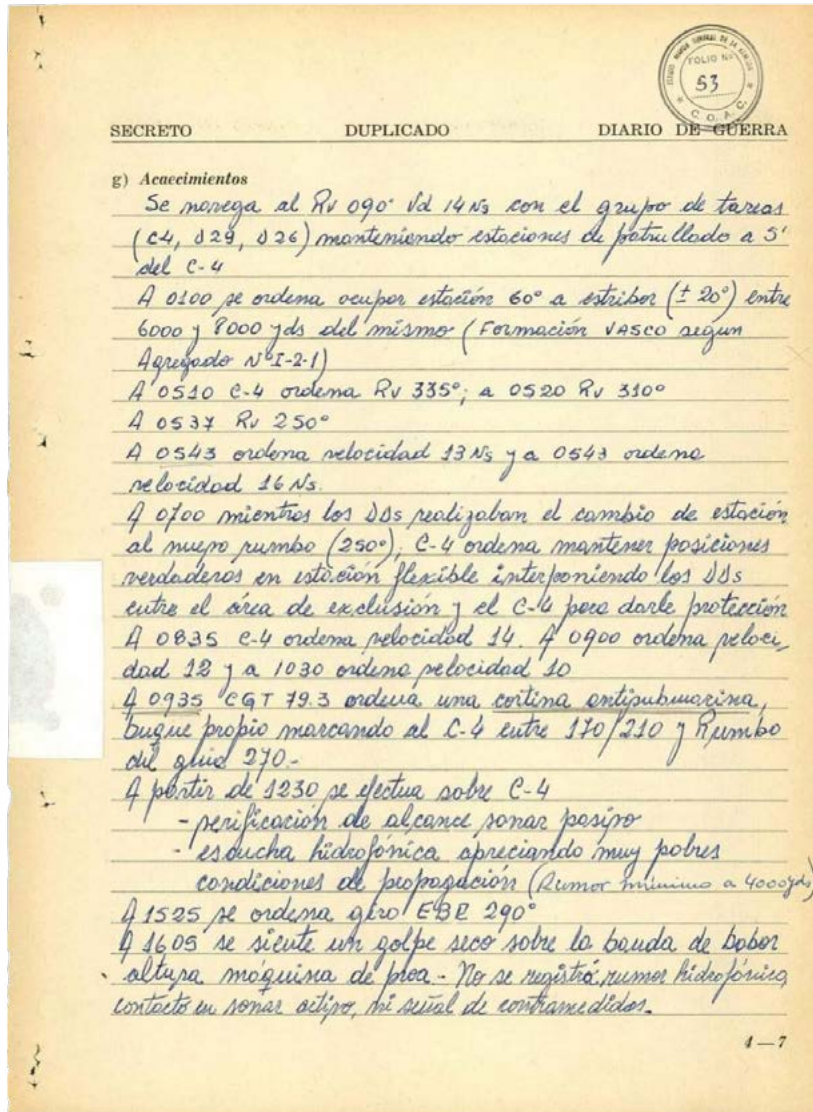 FOLIO Nº
53
C. O. A. C.
SECRETO DUPLICADO DIARIO DE GUERRA
g) Acaecimientos
Se navega al Rv 090° Vd 14 Ns con el grupo de tareas
(C4, D29, D26) manteniendo estaciones de patrullado a 5'
del C-4
A 0100 se ordena ocupar estación 60° a estribor (± 20°) entre
6000 y 8000 yds del mismo (Formación VASCO según
Agregado NºI-2-1)
A 0510 C-4 ordena Rv 335°; a 0520 Rv 310°
A 0537 Rv 250°
A 0543 ordena velocidad 13 Ns y a 0543 ordena
velocidad 16 Ns.
A 0700 mientras los DDs realizaban el cambio de estación
al nuevo rumbo (250°), C-4 ordena mantener posiciones
verdaderas en estación flexible interponiendo los DDs
entre el área de exclusión y el C-4 para darle protección
A 0835 C-4 ordena velocidad 14. A 0900 ordena veloci-
dad 12 y a 1030 ordena velocidad 10
A 0935 CGT 79.3 ordena una cortina antisubmarina,
buque propio marcando al C-4 entre 170/210 y Rumbo
del guía 270.-
A partir de 1230 se efectua sobre C-4
- verificación de alcance sonar pasivo
- escucha hidrofónica apreciando muy pobres
condiciones de propagación (Rumor mínimo a 4000yds)
A 1525 se ordena giro EBR 290°
A 1605 se siente un golpe seco sobre la banda de babor
altura máquina de proa - No se registró rumor hidrofónico,
contacto en sonar activo, ni señal de contramedidas.
4—7